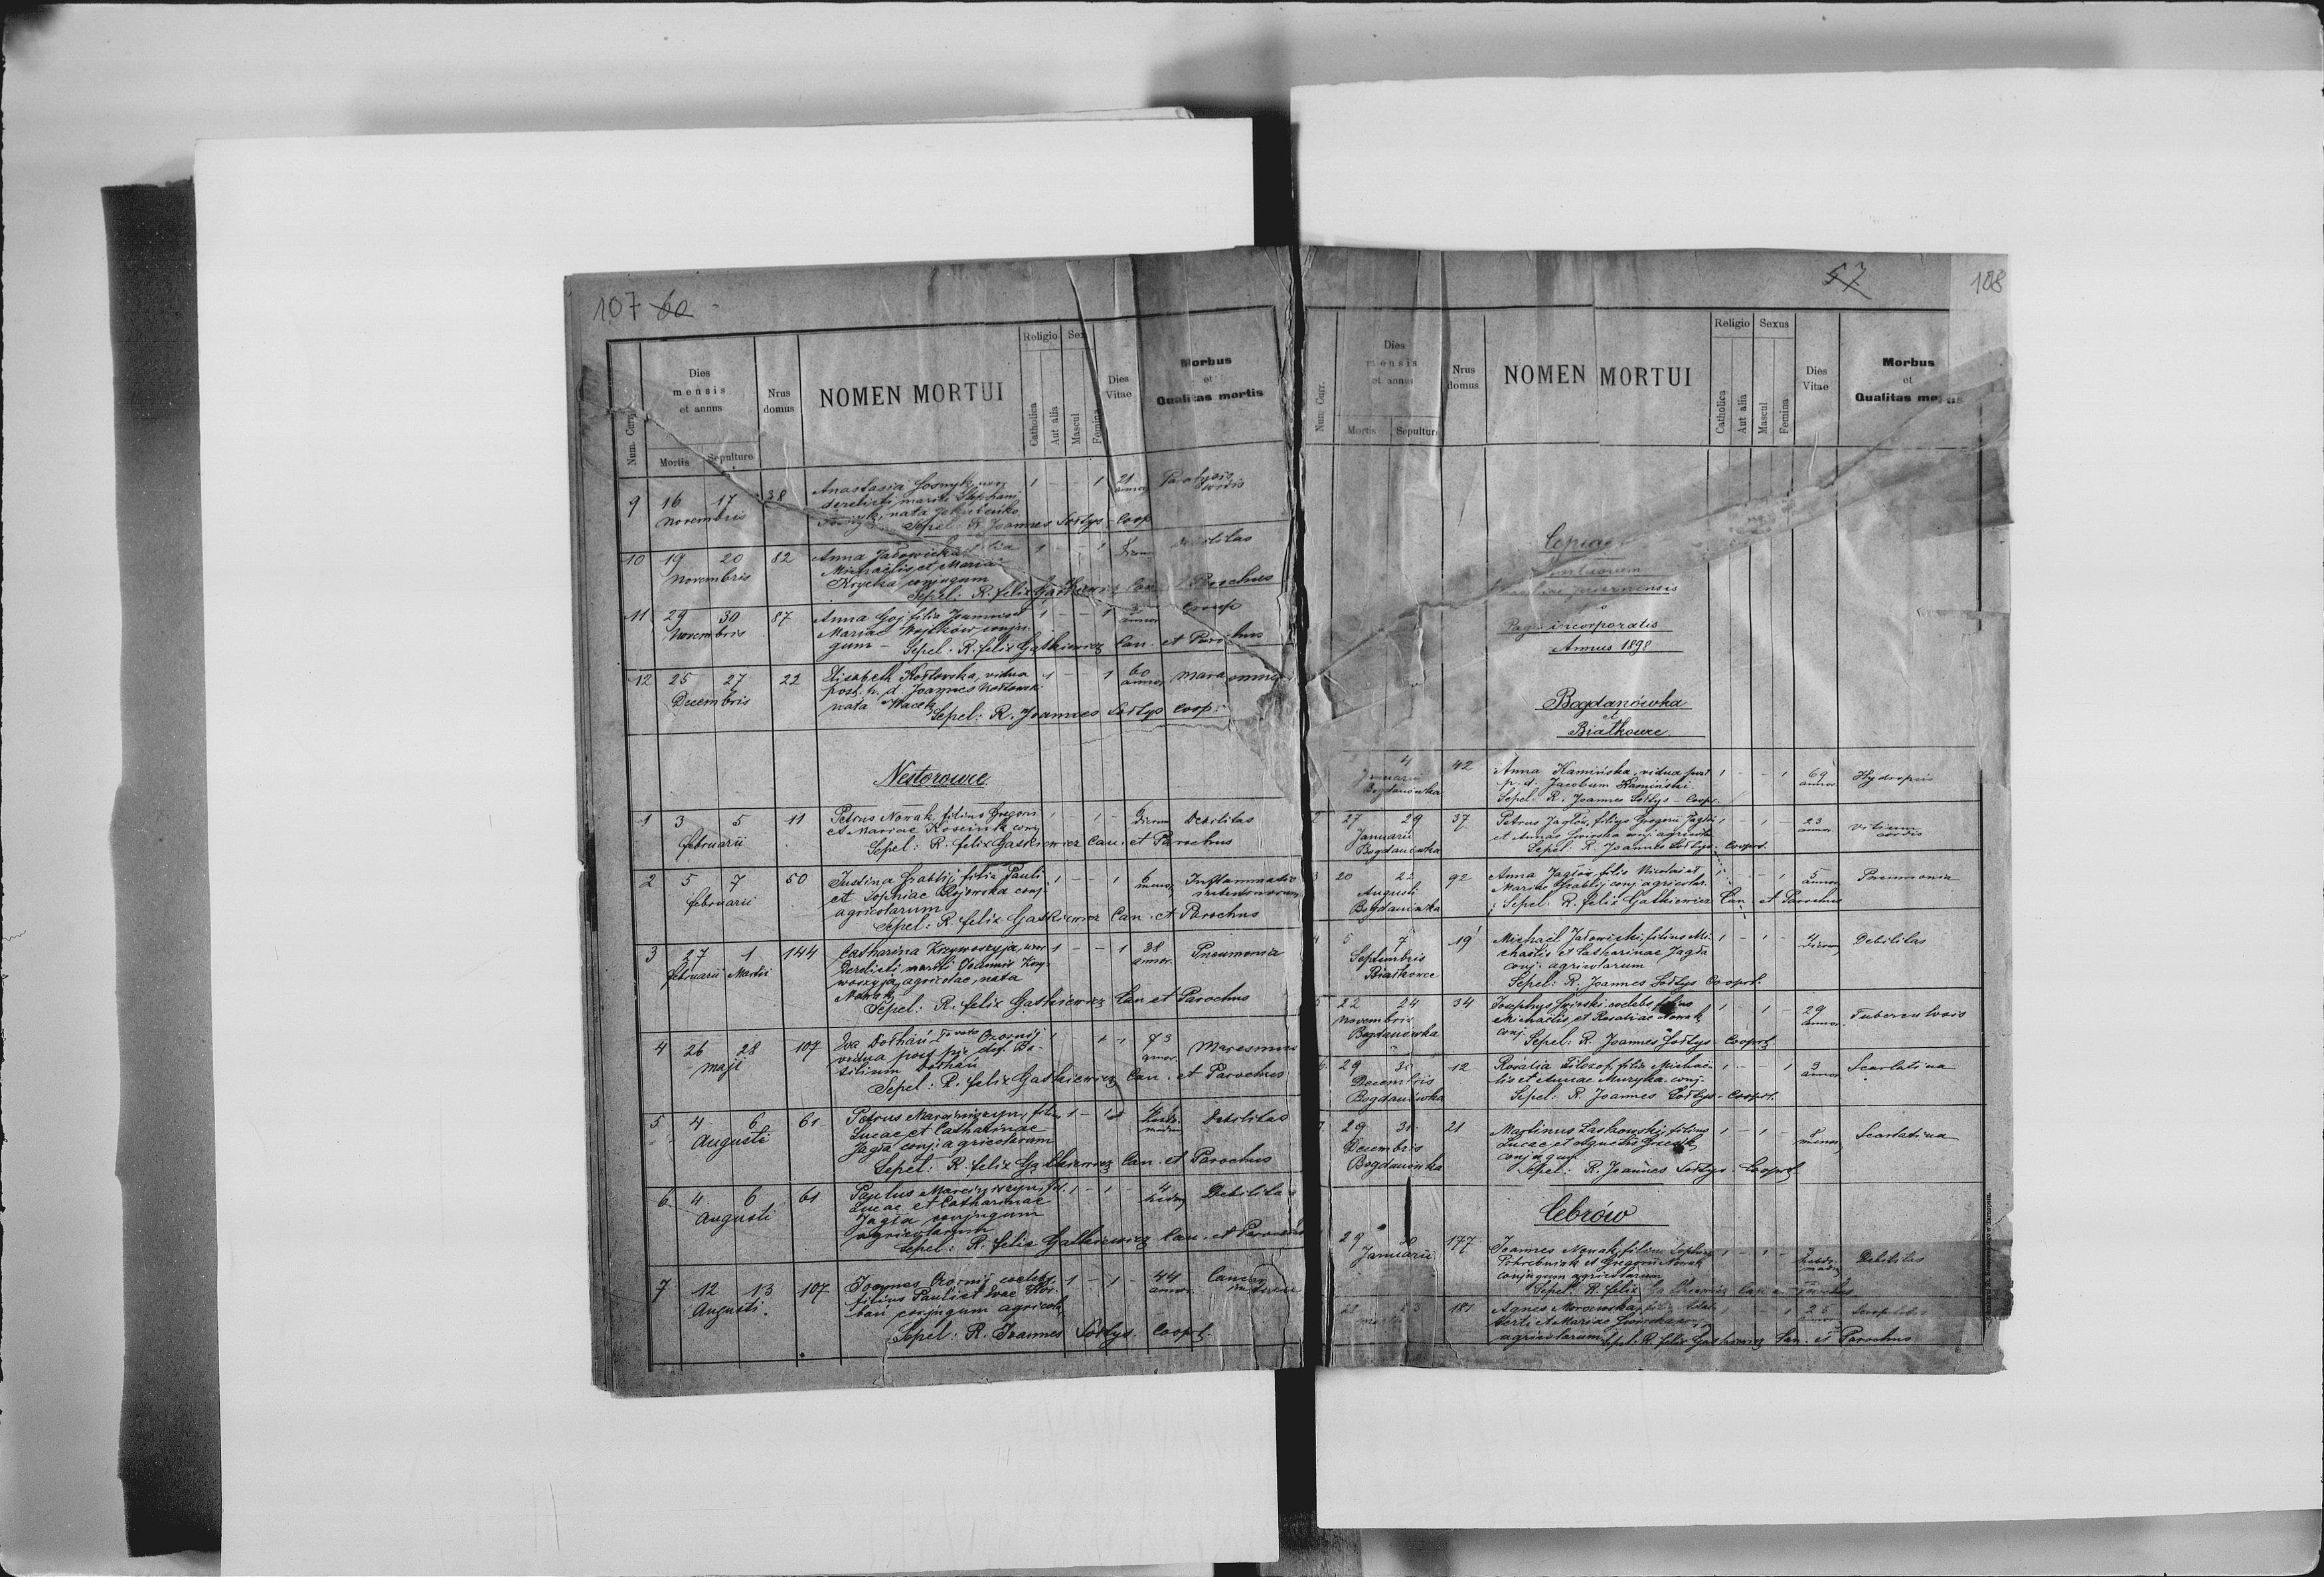 107 60
Num. Curr.
Dies mensis et annus
Mortis
Sepulture
Nrus domus
NOMEN MORTUI
Religio
Catholica
Aut alia
Sex
Mascul
Femina
Dies Vitae
Morbus et Qualitas mortis
9 16 17 38 Anastasia uxor 1 - - 1 21 Paralysis
Novembris derelicti mariti Stephani annor. cordis
nata
Sepel: R. Joannes Sołtys - Coop.
10 19 20 82 Anna Jadowicka filia 1 - - 1 Debilitas
Novembris Michaelis et Maria
Hrycka conjugum
Sepel: R. Felix Gątkiewicz Can. et Parochus
11 29 30 87 Anna Goj filia Joannis et 1 - - 1 Croup
Novembris Mariae Wojtków conju- annor.
gum - Sepel. R. Felix Gątkiewicz Can. et Parochus
12 25 27 22 Elisabeth Kozłowska, vidua 1 - - 1 60 Marasmus
Decembris post. p. d. Joannes Kozłowski annor.
nata Wacek
Sepel: R. Joannes Sołtys Coop.
Nestorowce
1 3 5 11 Petrus Nowak filius Gregorii 1 - 1 - dierum Debilitas
Februarii et Mariae Kosciuk conj
Sepel: R. Felix Gątkiewicz Can. et Parochus
2 5 7 50 Justina Grablij filia Pauli 1 - - 1 6 Inflammatio
Februarii et Sophiae Rojowska conj. mens. intestinorum
agricolarum
Sepel: R. Felix Gątkiewicz Can. et Parochus
3 27 1 144 Catharina Krzywoszyja, uxor 1 - - 1 38 Pneumonia
Februarii Martii derelicti mariti Joannis Krzy- annor.
woszyja, agricolae, nata
Nowak
Sepel: R. Felix Gątkiewicz Can et Parochus
4 26 28 107 Eva Dołhań I voto Ozornij 1 - - 1 73 Marasmus
Maji vidua post pie def. Ba- annor.
silium Dołhań
Sepel: R. Felix Gątkiewicz Can. et Parochus
5 4 6 61 Petrus Marciniszyn, filius 1 - 1 - 4 Debilitas
Augusti Lucae et Catharinae hebdo-
Jagła conj. agricolarum madum
Sepel: R. Felix Gątkiewicz Can. et Parochus
6 4 6 61 Paulus Marciniszyn, fil. 1 - 1 - 4 Debilitas
Augusti Lucae et Catharinae hebdo
Jagła conjugum
agricolarum
Sepel: R. Felix Gątkiewicz Can. et Parochus
7 12 13 107 Joannes Ozornij coelebs 1 - 1 - 44 Cancer
Augusti. filius Pauli et Evae annor.
conjugum agricol.
Sepel: R. Joannes Sołtys. Cooprt.
57 108
Num. Curr.
Dies mensis et annus
Mortis
Sepulture
Nrus domus
NOMEN MORTUI
Religio
Catholica
Aut alia
Sexus
Mascul
Femina
Dies Vitae
Morbus et Qualitas mortis
Copia
Mortuorum
Pagis incorporatis
Annus 1898
Bogdanówka
et
Białkowce
4 42 Anna Kamińska, vidua post 1 - - 1 69 Hydropsis
Januarii p. d. Jacobum Kamiński annor.
Bogdanówka Sepel: R. Joannes Sołtys - Coopt.
2 27 29 37 Petrus Jagłów, filius Gregorii Jagłów 1 - 1 - 23 Vitium
Januarii et Annae conj. agricolar. annor. cordis
Bogdanówka Sepel: R. Joannes Sołtys - Cooprt.
3 20 22 92 Anna Jagłów, filia Nicolai et 1 - - 1 5 Pneumonia
Augusti Mariae Grablij conj. agricolar. annor.
Bogdanówka Sepel: R. Felix Gątkiewicz Can. et Parochus
4 5 7 19 Michael Jadowicki, filius Mi- 1 - 1 - dierum Debilitas
Septembris chaelis et Catharinae Jagła
Białkowce conj. agricolarum
Sepel: R. Joannes Sołtys Cooprt.
5 22 24 34 Josephus coelebs filius 1 - 1 - 29 Tuberculosis
Novembris Michaelis et Rosaliae Nowak annor.
Bogdanówka conj. Sepel: R. Joannes Sołtys - Cooprt.
6 29 30 12 Rosalia Filozof, filia Michae- 1 - - 1 3 Scarlatina
Decembris lis et Annae Muzyka conj. annor.
Bogdanówka Sepel: R. Joannes Sołtys - Cooprt.
7 29 31 21 Martinus Laskowski, filius 1 - 1 - 8 Scarlatina
Decembris Lucae et Agnetis mens.
Bogdanówka conjugum
Sepel: R. Joannes Sołtys. Cooprt.
Cebrów
29 30 177 Joannes Nowak, filius Sophiae 1 - 1 - 3 Debilitas
Januarii Pohrebniak et Gregorii Nowak hebdo-
conjugum agricolarum madum
Sepel: R. Felix Gątkiewicz Can et Parochus
22 23 181 Agnes Morawska, filia Adal- 1 - - 1 2
berti et Mariae conj.
agricolarum Sepel: R. Felix Gątkiewicz Can. et Parochus